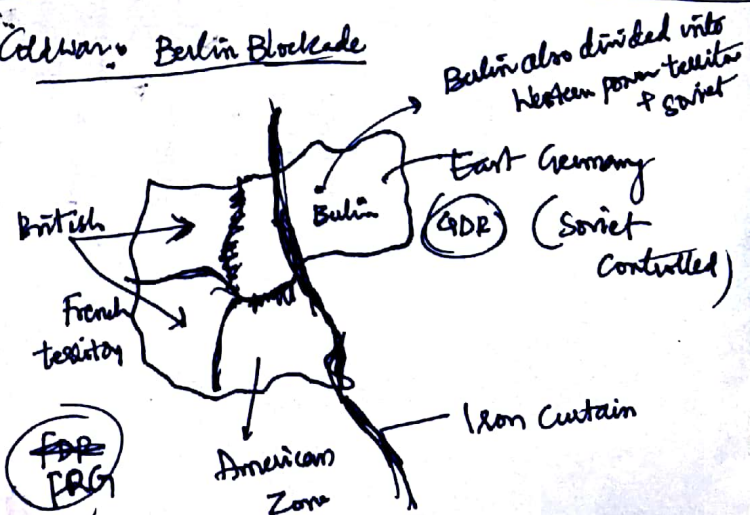 Coldwar: Berlin Blockade
Berlin also divided into
Western power territor
+ Soviet
East Germany
GDR (Soviet
Controlled)
Berlin
British
French
territory
Iron Curtain
American
Zone
FDR
FRG